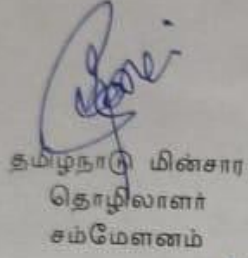 தமிழ்நாடு மின்சார
தொழிலாளர்
சம்மேளனம்